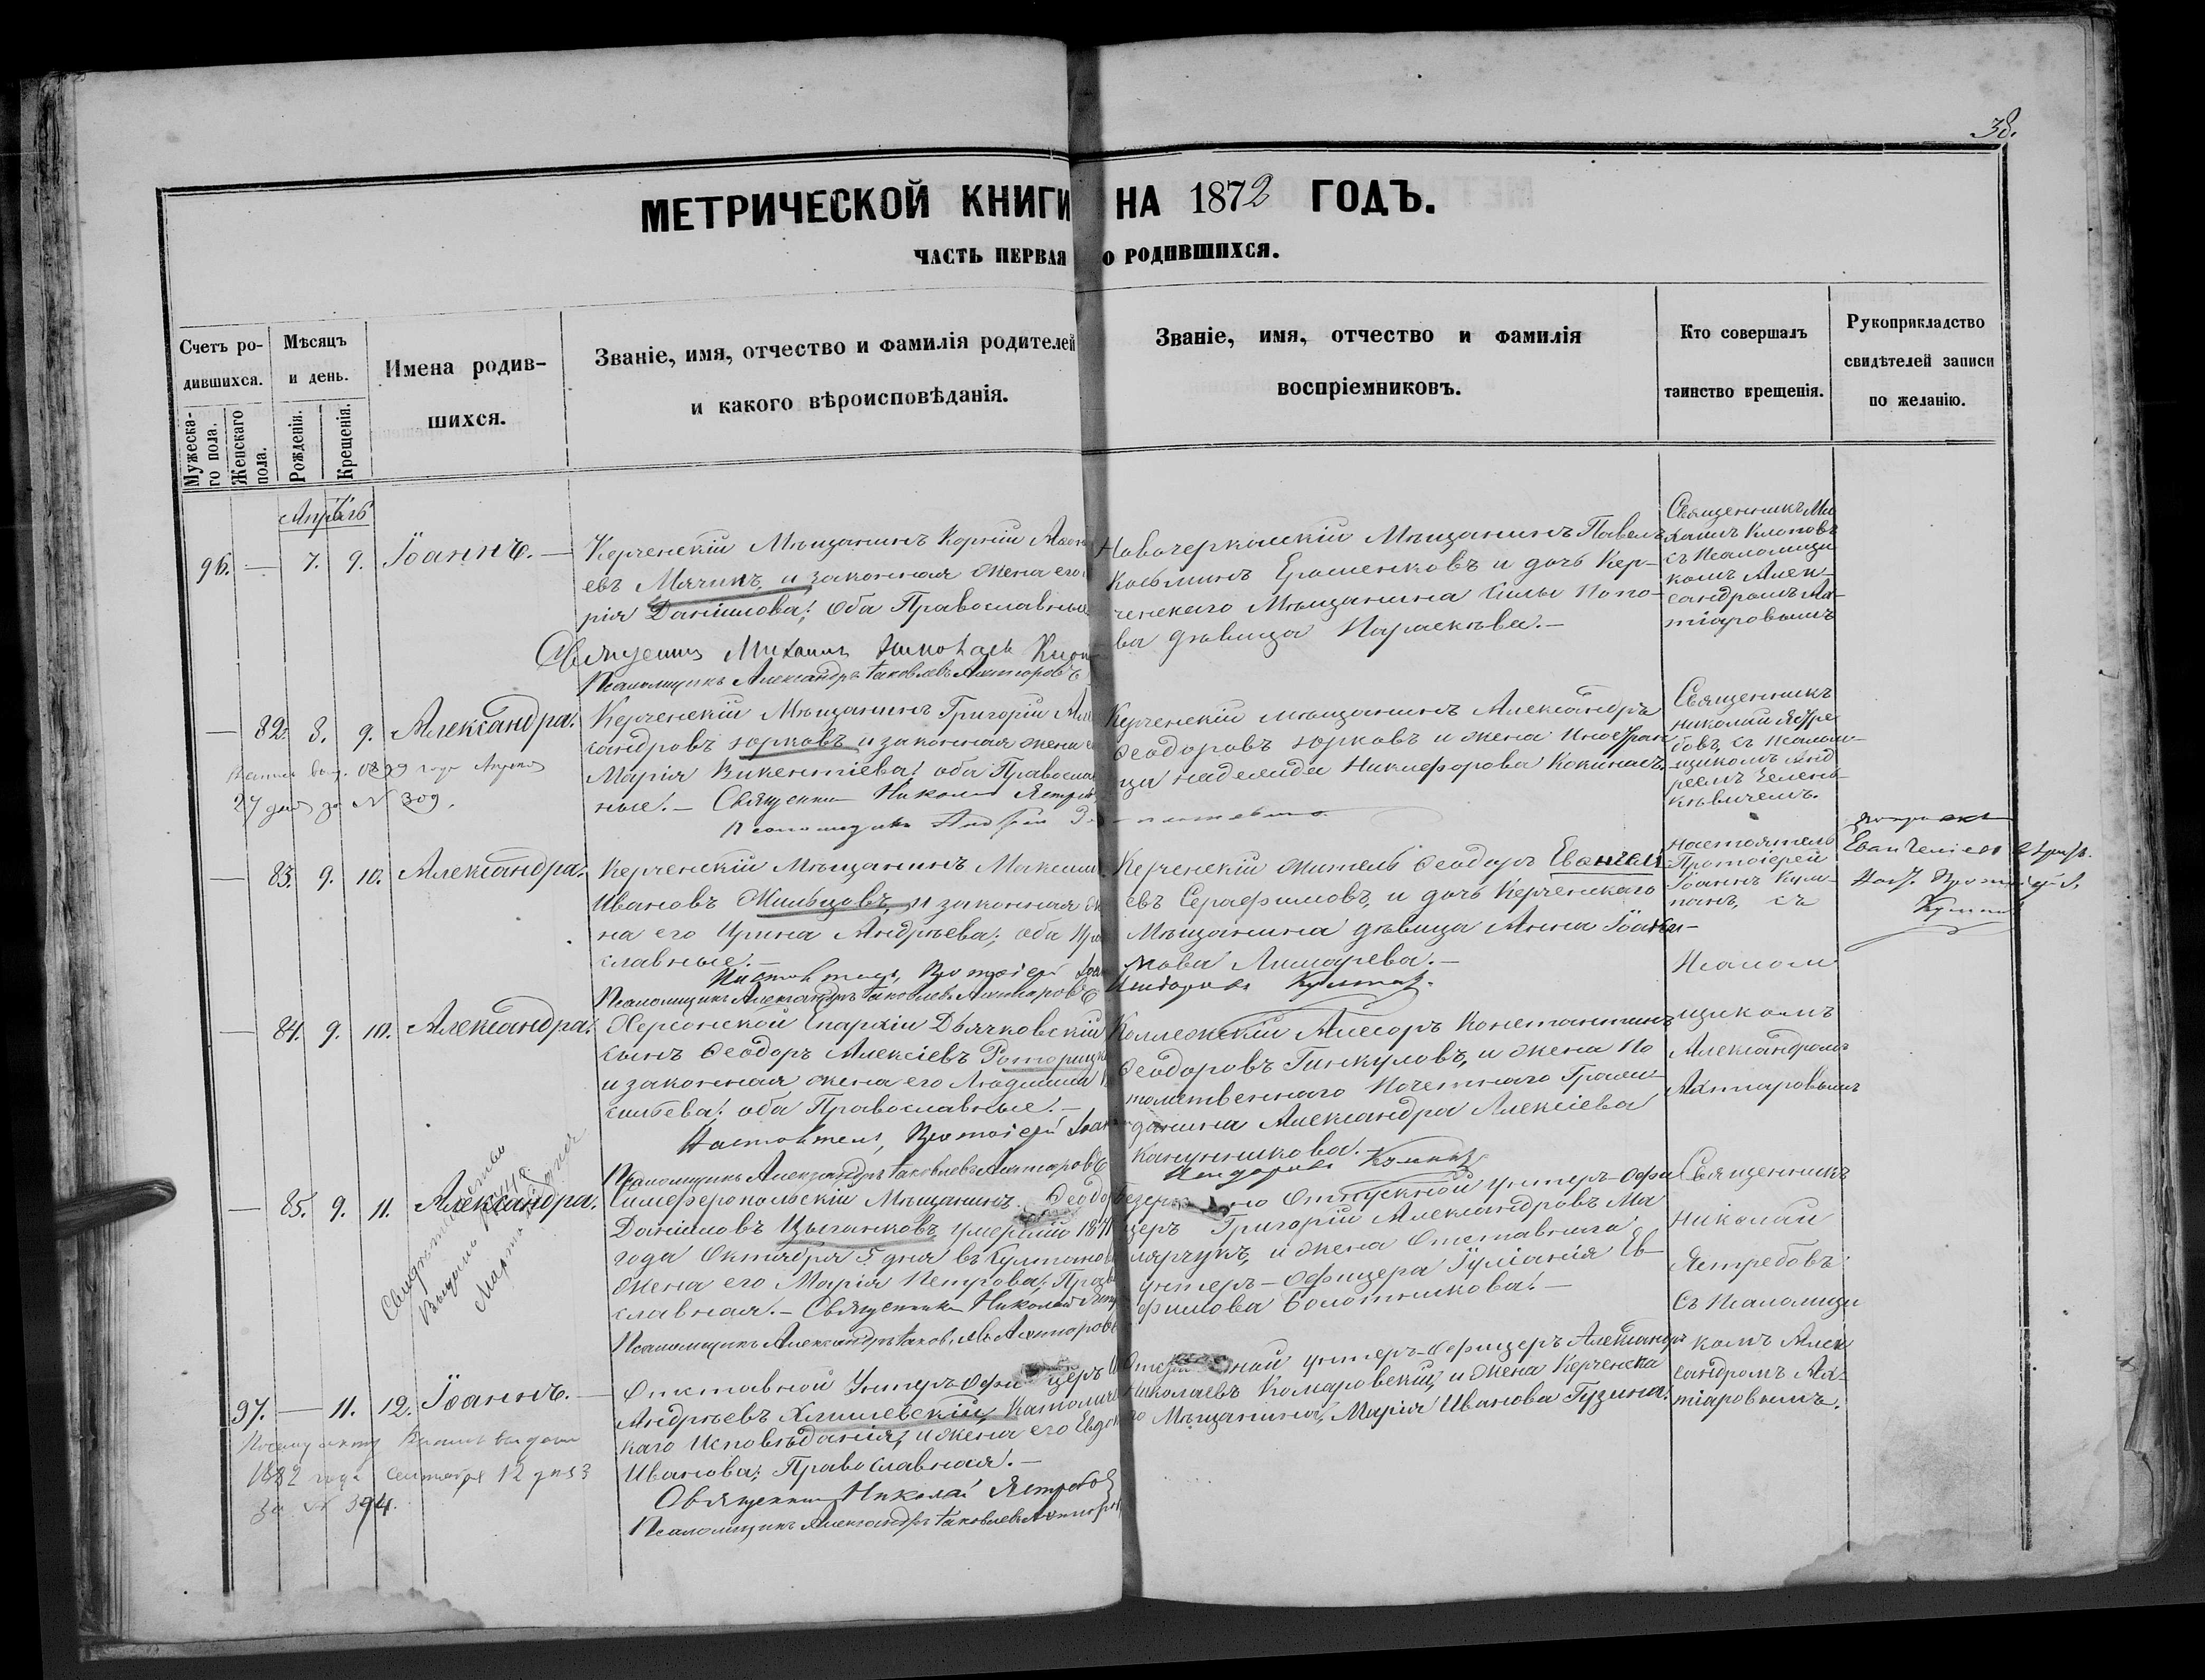 38.
МЕТРИЧЕСКОЙ КНИГИ НА 1872 ГОДЪ.
ЧАСТЬ ПЕРВАЯ О РОДИВШИХСЯ.
Счетъ ро-
дившихся.
Мужеска-
го пола.
Женскаго
пола.
Мѣсяцъ
и день.
Рожденія.
Крещенія.
Имена родив-
шихся.
Званіе, имя, отчество и фамилія родителей
и какого вѣроисповѣданія.
Званіе, имя, отчество и фамилія
воспріемниковъ.
Кто совершалъ
таинство крещенія.
Рукоприкладство
свидѣтелей записи
по желанію.
Апрѣль
96. — 7. 9. Іоаннъ. —
Керченскій Мѣщанинъ Корній
евъ Мячинъ, и законная жена его
рія Даніилова; оба Православные
Священникъ Михаилъ
Псаломщикъ Александръ Яковлевъ Ахтіаровъ
Новочеркаскій Мѣщанинъ Павелъ
Косьминъ Ерошенковъ и дочь Кер-
ченскаго Мѣщанина Попо-
ва дѣвица Параскева. —
Священникъ Ми
хаилъ
съ Псаломщи
комъ Алек-
сандромъ Ах-
тіаровымъ
— 82. 8. 9. Александра.
27 дня за № 309.
Керченскій Мѣщанинъ Григорій Алек
сандровъ Юрковъ и законная жена е
Марія Викентіева; оба Правосла
ные. — Священникъ Николай Ястреб
Псаломщикъ Андрей
Керченскій мѣщанинъ Александръ
Ѳеодоровъ Юрковъ и жена Иностран
ца Надежда Никифорова
Священникъ
Николай Ястре
бовъ, съ Псалом-
щикомъ Анд
реемъ Зелен
кевичемъ.
— 83. 9. 10. Александра.
Керченскій Мѣщанинъ Максим
Ивановъ Жильцовъ, и законная ж
на его Ирина Андреева; оба Пра
славные. —
Настоятель, Протоіерей Іоан
Псаломщикъ Александръ Яковлевъ Ахтіаровъ
Керченскій житель Ѳеодоръ Евангел
евъ Серафимовъ, и дочь Керченскаго
Мѣщанина дѣвица Анна Іоаки-
мова Лимарева. —
Настоятель
Протоіерей
Іоаннъ Кум-
панъ, съ
Псалом
— 84. 9. 10. Александра.
Херсонской Епархіи Дьячковскій
сынъ Ѳеодоръ Алексіевъ
и законная жена его Людмила
сильева; оба Православные. —
Настоятель, Протоіерей Іоан
Псаломщикъ Александръ Яковлевъ Ахтіаровъ
Коллежскій Ассесоръ Константинъ
Ѳеодоровъ Гинкуловъ, и жена По
томственнаго Почетнаго Граж-
данина Александра Алексіева
Канунникова. —
щикомъ
Александромъ
Ахтіаровымъ
— 85. 9. 11. Александра.
Свидѣтельство
Выдано
Марта
Симферопольскій Мѣщанинъ Ѳеодор
Даніиловъ Цыганковъ, умершій 1871
года Октября 5 дня въ
жена его Марія Петрова; Право
славная. — Священникъ Николай Ястр
Псаломщикъ Александръ Яковлевъ Ахтіаровъ
Отпускной унтеръ-офи
церъ Григорій Александровъ Ма
лярчукъ, и жена Отставнаго
унтеръ-Офицера Іуліанія Ев
фимова Болотникова. —
Священникъ
Николай
Ястребовъ
Съ Псаломщи
комъ Алек
сандромъ Ах-
тіаровымъ.
97. — 11. 12. Іоаннъ. —
1882 года Сентября 12 дня
за № 394.
Отставной Унтеръ-Офи церъ
Андреевъ Хмилевскій, Католиче
каго Исповѣданія, и жена его Евдок
Иванова; Православная. —
Священникъ Николай Ястребов
Псаломщикъ Александръ Яковлевъ Ахтіаров
унтеръ-Офицеръ Александръ
Николаевъ Комаровскій, и жена Керченска
го Мѣщанина, Марія Иванова Гузина.